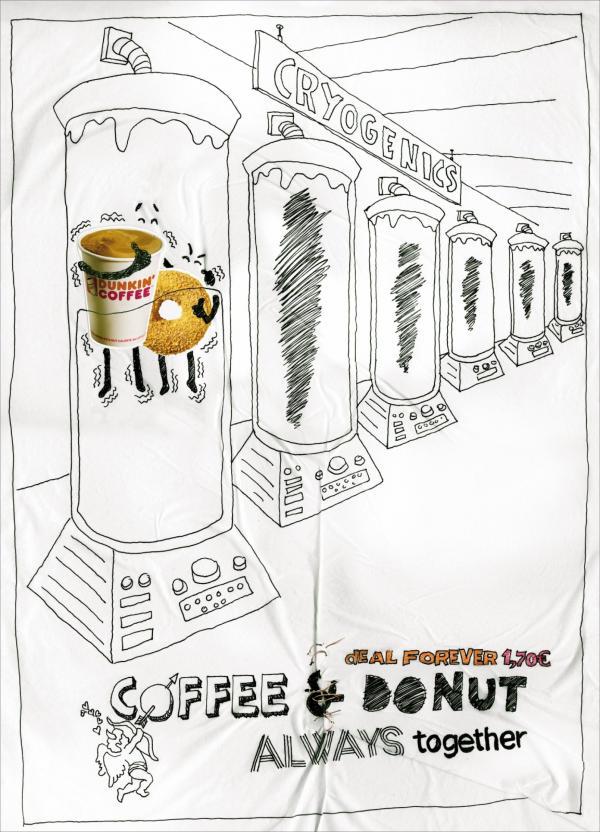 CRYOGENICS
DUNKIN'
COFFEE
dEAL FOREVER 1,70€
COFFEE & DONUT
ALWAYS together